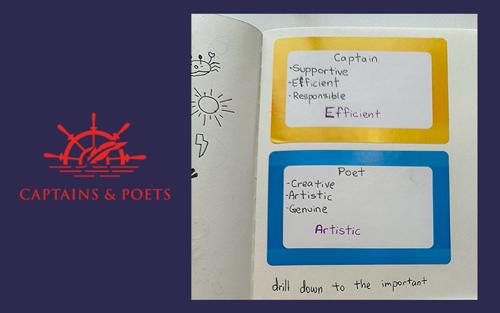 CAPTAINS & POETS
Captain
-Supportive
-Efficient
-Responsible
Efficient
Poet
-Creative
-Artistic
-Genuine
Artistic
drill down to the important